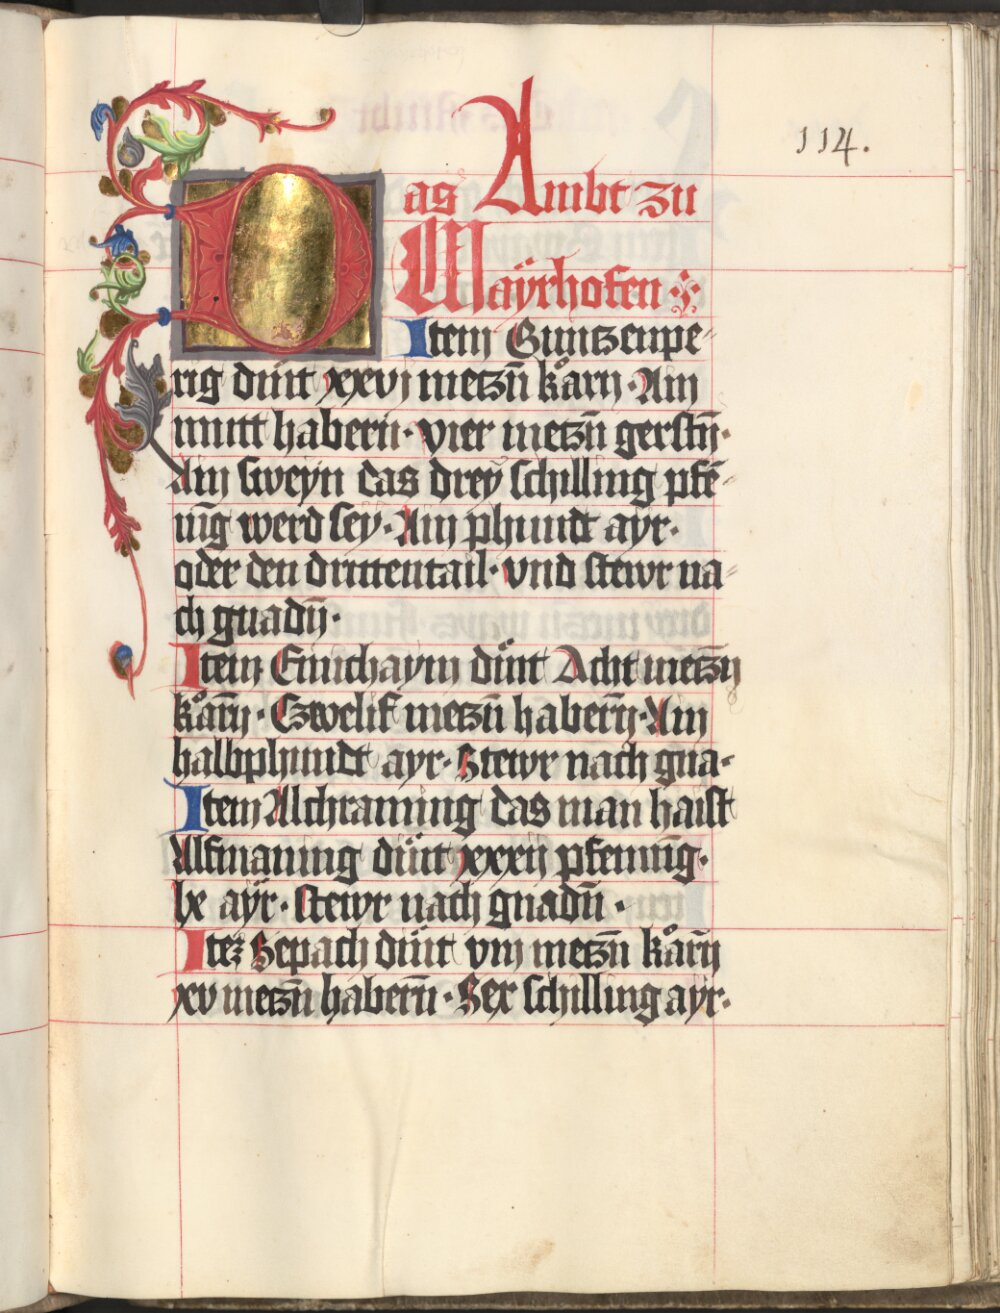 114.
Das Ambt zu
Maÿrhofen
Item Guntzenpe-
rig dint xxvj metzn̄ kårn · Am
mutt habern · vier metzn̄ gerstn̄ ·
Am sweyn das dreÿ schilling pfe-
nīg werd sey · Am phundt ayr ·
oder den drittentail · vnd stewr na-
ch gnadn̄ ·
Item Emichaym dint Acht metzn̄
kårn̄ · Czwelif metzn̄ habern̄ · Am
halbphundt ayr · Stewr nach gna ·
Item Alchraming das man haist
Alfmaning dint xxxij pfennīg ·
lx aÿr · stewr nach gnadn̄ ·
Itez Sepach dint viij metzn̄ kårn̄
xv metzn̄ habern̄ · Sex schilling ayr ·